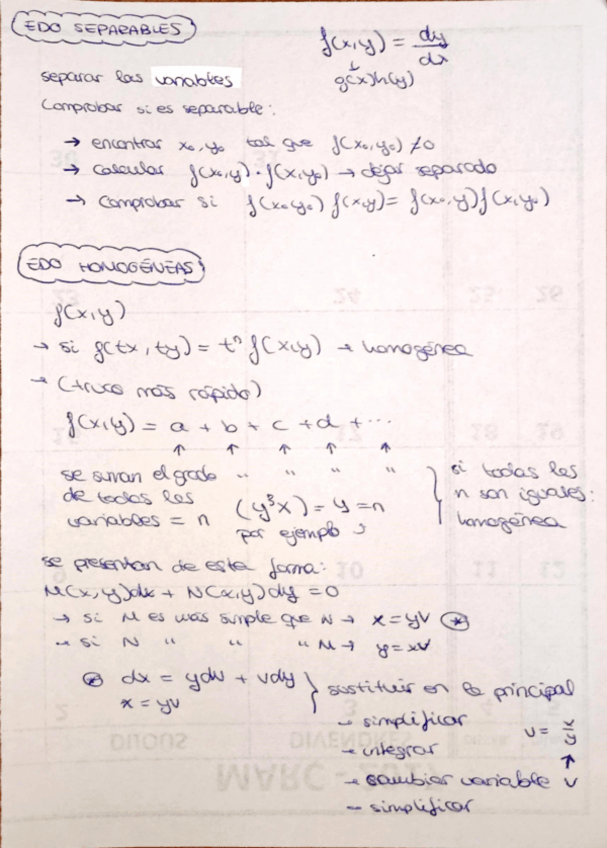 EDO SEPARABLES
f(x,y) = dy/dx
↓
g(x)h(y)
separar las variables
Comprobar si es separable:
→ encontrar x₀,y₀ tal que f(x₀,y₀) ≠0
→ calcular f(x₀,y)·f(x,y₀) → dejar separado
→ Comprobar si f(x₀y₀) f(x,y)= f(x₀,y)f(x,y₀)
EDO HOMOGÉNEAS
f(x,y)
→ si f(tx,ty) = tⁿ f(x,y) → homogénea
→ (truco más rápido)
f(x,y) = a + b + c + d + ...
↑ ↑ ↑ ↑ ↑
se suman el grado " " " "
de todas las
variables = n
(y³x) = 4 = n
por ejemplo
si todas las
n son iguales:
homogénea
se presentan de esta forma:
M(x,y)dx + N(x,y)dy = 0
→ si M es más simple que N → x = yv ⊛
→ si N " " " M → y = xv
⊛ dx = ydv + vdy
x = yv
} sustituir en la principal
→ simplificar
→ integrar
→ cambiar variable v
→ simplificar
v = x/y
↑
DIJOUS
DIVENDRES
MARÇ - 2017
2
3
4
5
9
10
11
12
17
18
19
23
24
25
26
30
31